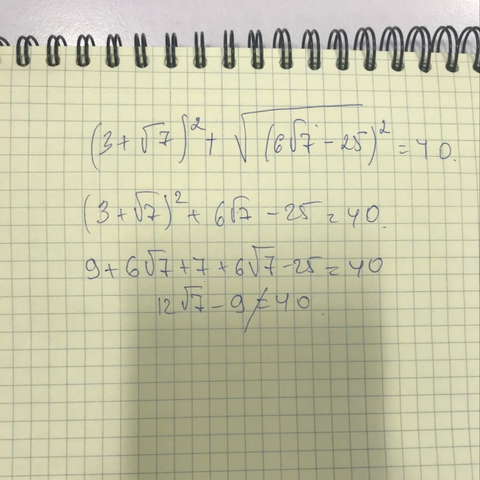 (3+√7)²+ √(6√7-25)² =40.
(3+√7)²+ 6√7 -25=40.
9+6√7+7+6√7-25=40
12√7-9≠40